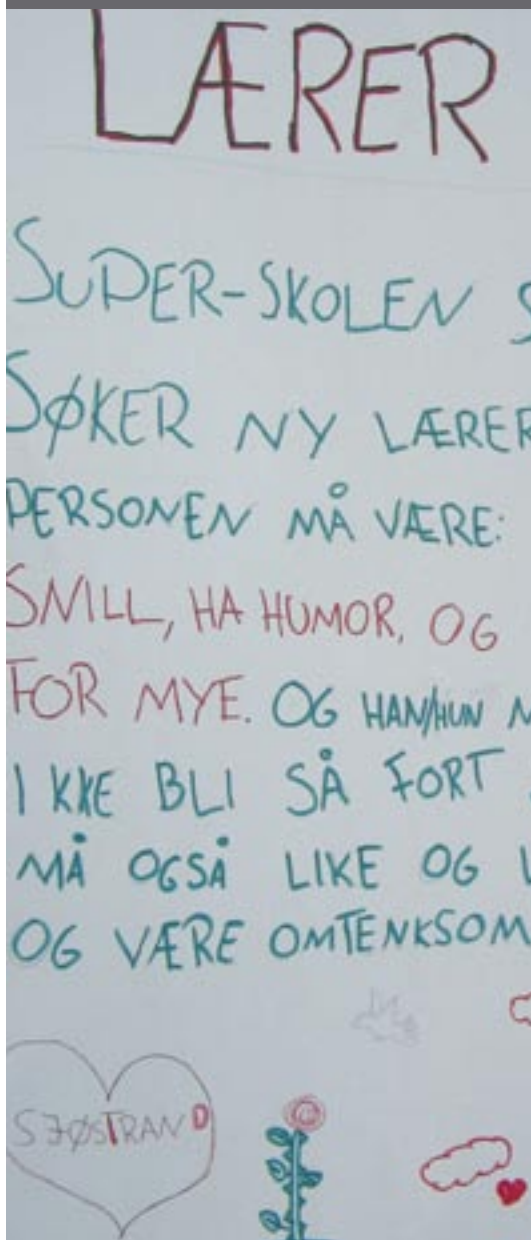 LÆRER
SUPER-SKOLEN S
SØKER NY LÆRER
PERSONEN MÅ VÆRE:
SNILL, HA HUMOR, OG
FOR MYE. OG HAN/HUN M
IKKE BLI SÅ FORT
MÅ OGSÅ LIKE OG
OG VÆRE OMTENKSOM
SJØSTRAND